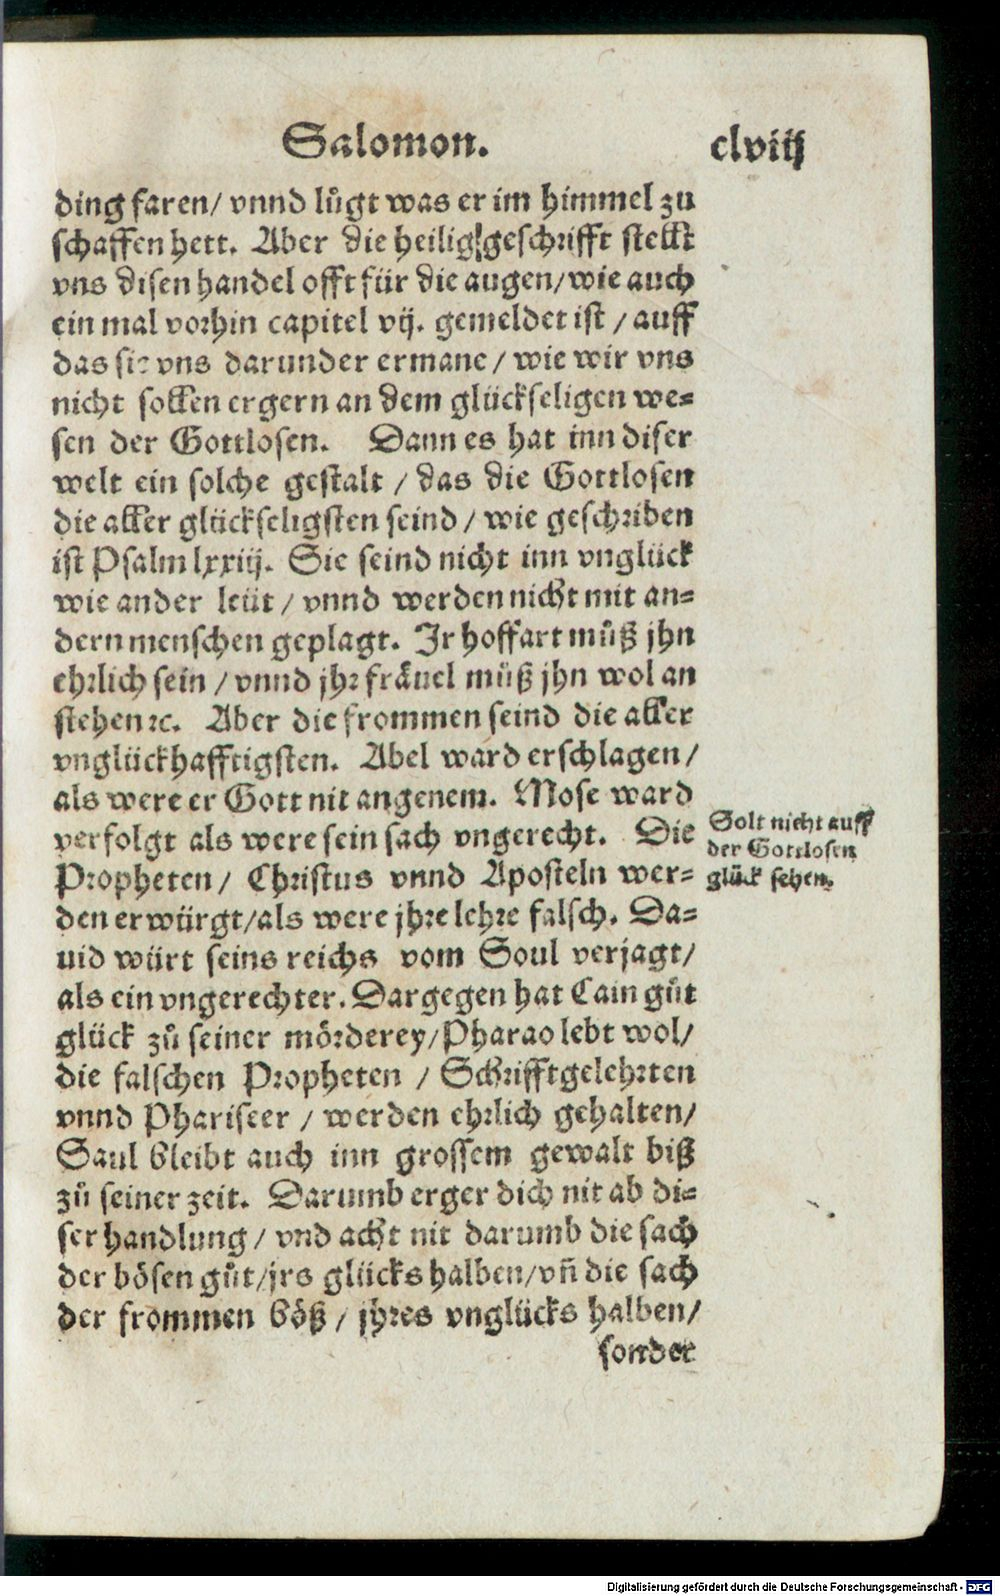 Salomon. clviij
ding faren/ vnnd lůgt was er im himmel zu
schaffen hett. Aber die heilig geschrifft stellt
vns disen handel offt für die augen/ wie auch
ein mal vorhin capitel vij. gemeldet ist / auff
das sie vns darunder ermane / wie wir vns
nicht sollen ergern an dem glückseligen we⸗
sen der Gottlosen. Dann es hat inn diser
welt ein solche gestalt / das die Gottlosen
die aller glückseligsten seind / wie geschriben
ist Psalm lxxiij. Sie seind nicht inn vnglück
wie ander leüt / vnnd werden nicht mit an⸗
dern menschen geplagt. Ir hoffart můß jhn
ehrlich sein / vnnd jhr fräuel můß jhn wol an
stehen ꝛc. Aber die frommen seind die aller
vnglückhafftigsten. Abel ward erschlagen/
als were er Gott nit angenem. Mose ward
verfolgt als were sein sach vngerecht. Die
Propheten/ Christus vnnd Aposteln wer⸗
den erwürgt/ als were jhre lehre falsch. Da⸗
uid würt seins reichs vom Soul verjagt/
als ein vngerechter. Dargegen hat Cain gůt
glück zů seiner mörderey/ Pharao lebt wol/
die falschen Propheten / Schrifftgelehrten
vnnd Phariseer / werden ehrlich gehalten/
Saul bleibt auch inn grossem gewalt biß
zů seiner zeit. Darumb erger dich nit ab di⸗
ser handlung / vnd acht nit darumb die sach
der bösen gůt/ jrs glücks halben/ vñ die sach
der frommen böß / jhres vnglücks halben/
sonder
Solt nicht auff
der Gottlosen
glück sehen.
Digitalisierung gefördert durch die Deutsche Forschungsgemeinschaft - DFG